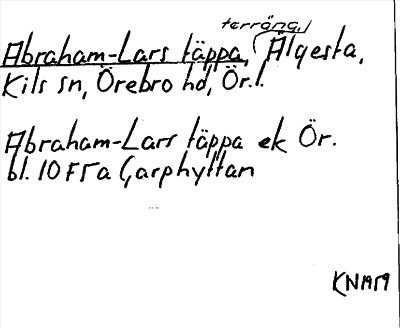 terräng,
Abraham-Lars täppa, Älgesta,
Kils sn, Örebro hd, Ör.l.
Abraham-Lars täppa ek Ör.
bl. 10 F 5 a Garphyttan